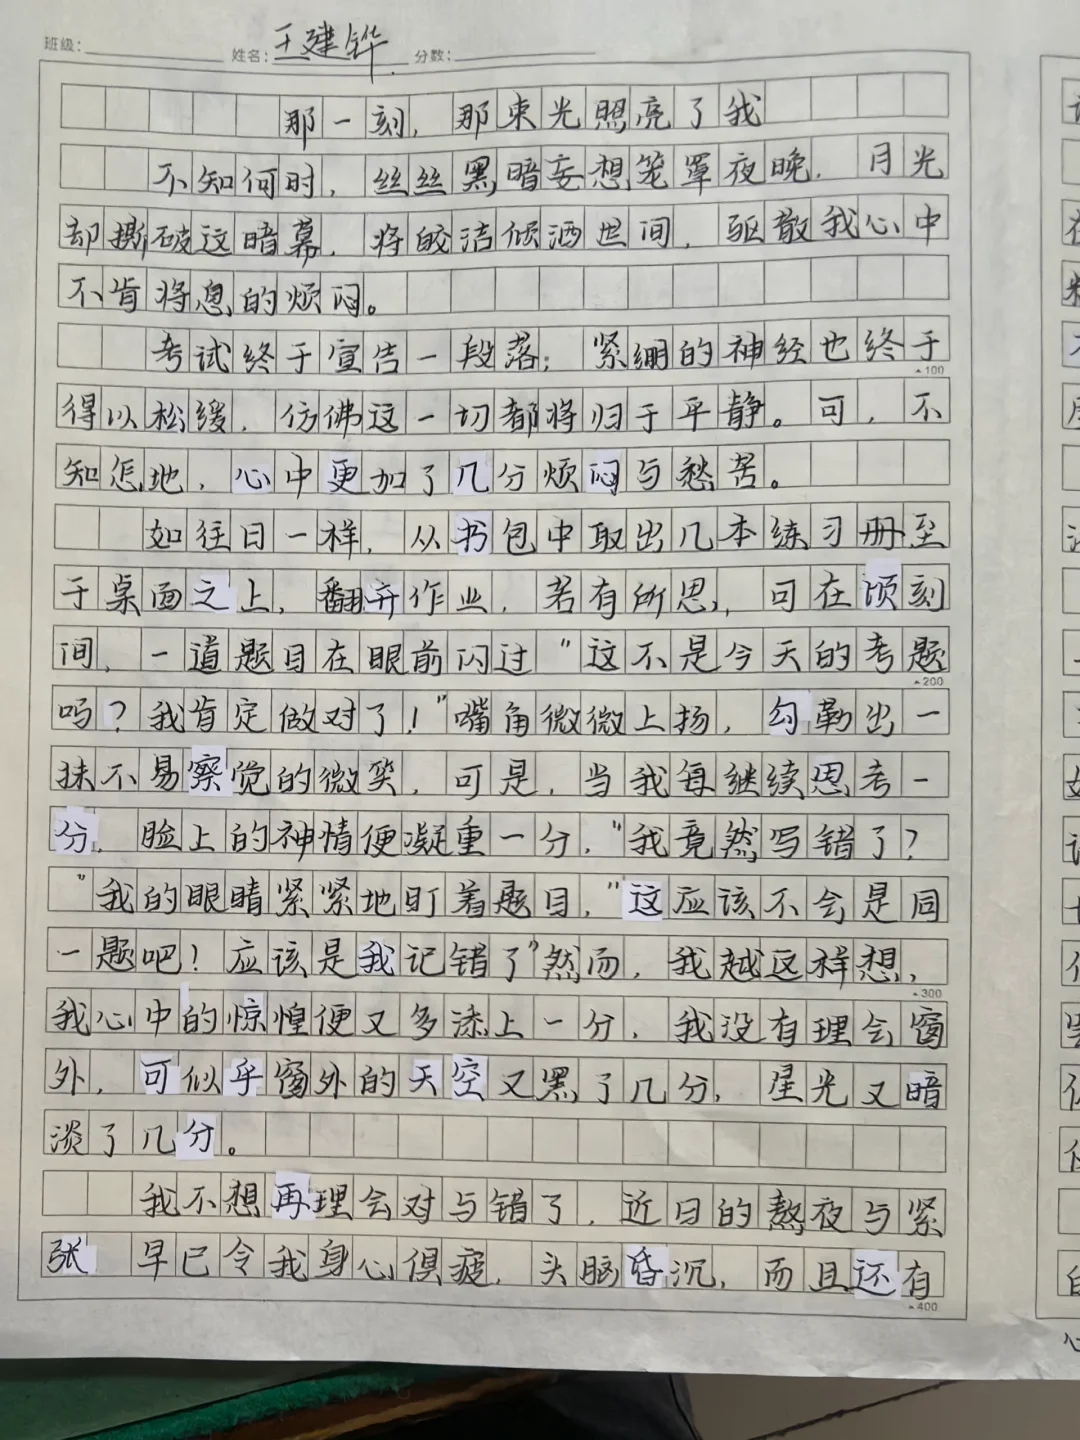 班级: 姓名: 王建铧 分数:
那一刻，那束光照亮了我
不知何时，丝丝黑暗妄想笼罩夜晚，月光
却撕破这暗幕，将皎洁倾洒世间，驱散我心中
不肯将息的烦闷。
考试终于宣告一段落；紧绷的神经也终于
100
得以松缓，仿佛这一切都将归于平静。可，不
知怎地，心中更加了几分烦闷与愁苦。
如往日一样，从书包中取出几本练习册至
于桌面之上，翻弄作业，若有所思，可在顷刻
间，一道题目在眼前闪过“这不是今天的考题
200
吗？我肯定做对了！”嘴角微微上扬，勾勒出一
抹不易察觉的微笑，可是，当我每继续思考一
分，脸上的神情便凝重一分，“我竟然写错了？
”我的眼睛紧紧地盯着题目，“这应该不会是同
一题吧！应该是我记错了”然而，我越这样想，
300
我心中的惊惶便又多添上一分，我没有理会窗
外，可似乎窗外的天空又黑了几分，星光又暗
淡了几分。
我不想再理会对与错了，近日的熬夜与紧
张 早已令我身心俱疲，头脑昏沉，而且还有
400